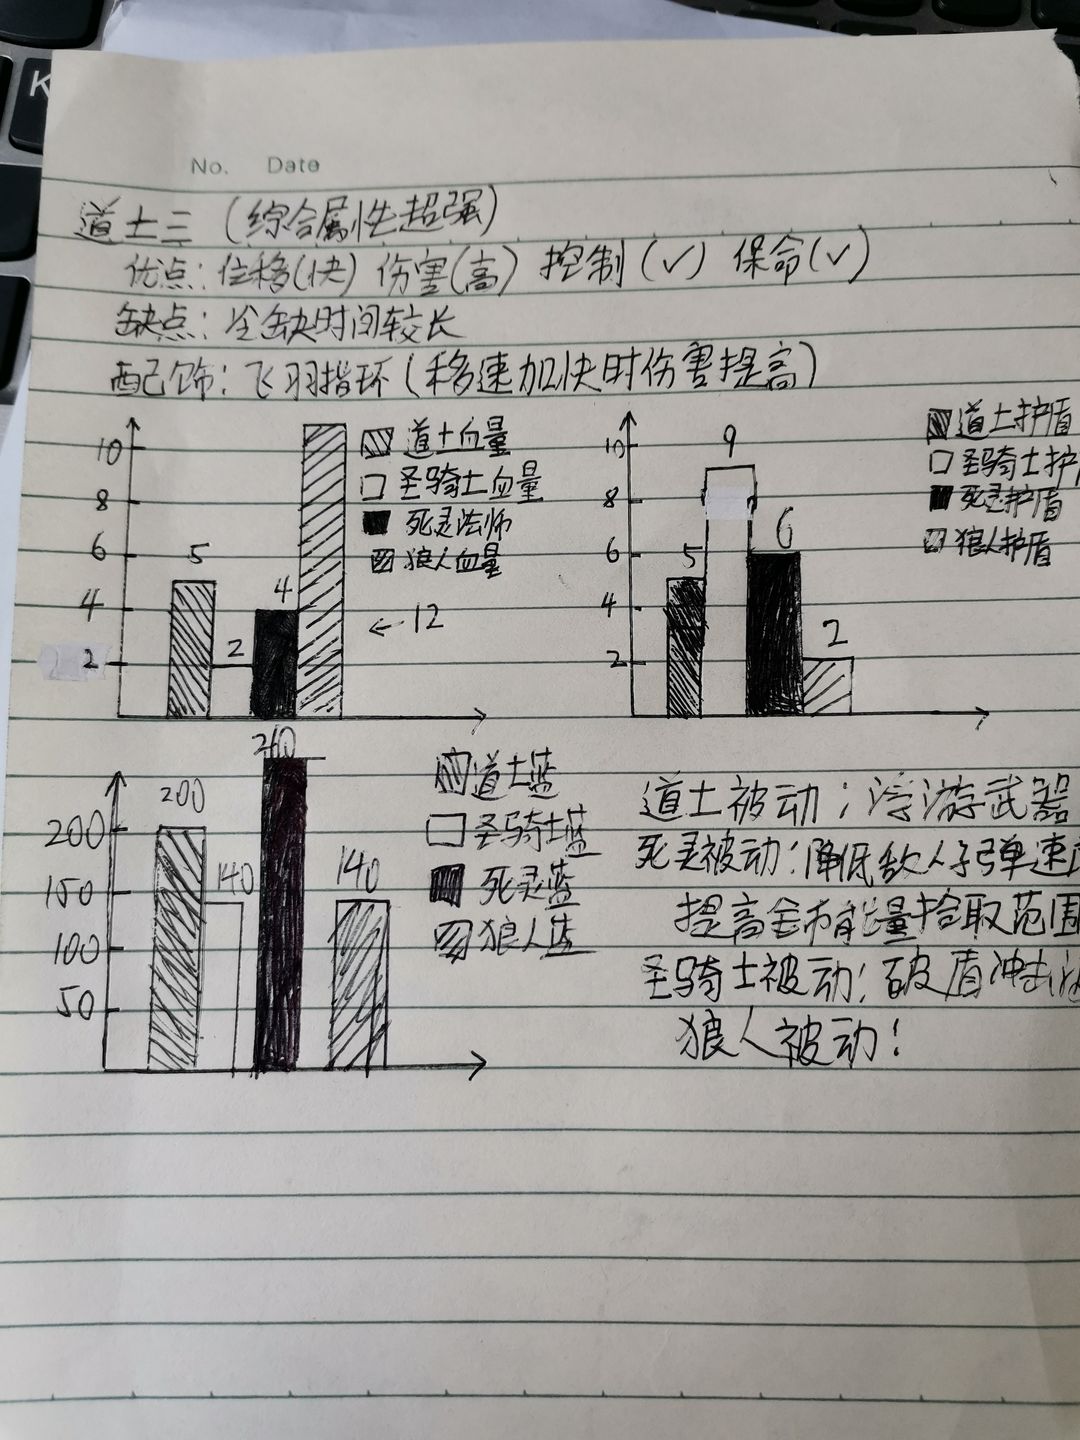 K
No. Date
道士三（综合属性超强）
优点：位移(快) 伤害(高) 控制(√) 保命(√)
缺点：冷缺时间较长
配饰：飞羽指环（移速加快时伤害提高）
10
8
6
4
2
5
2
4
←12
道士血量
圣骑士血量
死灵法师
狼人血量
10
8
6
4
2
5
9
6
2
道士护盾
圣骑士护
死灵护盾
狼人护盾
200
150
100
50
200
140
260
140
道士蓝
圣骑士蓝
死灵蓝
狼人蓝
道士被动：浮游武器
死灵被动：降低敌人子弹速
提高金币能量拾取范围
圣骑士被动：破盾冲击
狼人被动：